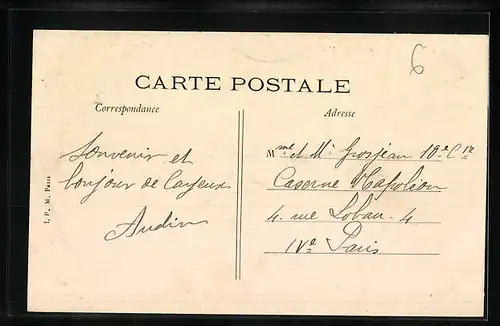 6
CARTE POSTALE
Correspondance
Adresse
Souvenir et
bonjour de Cayeux
Audin
Mme et Mr Grosjean 10e Cie
Caserne Napoléon
4 rue Lobau - 4
IVe Paris
I. P. M. Paris